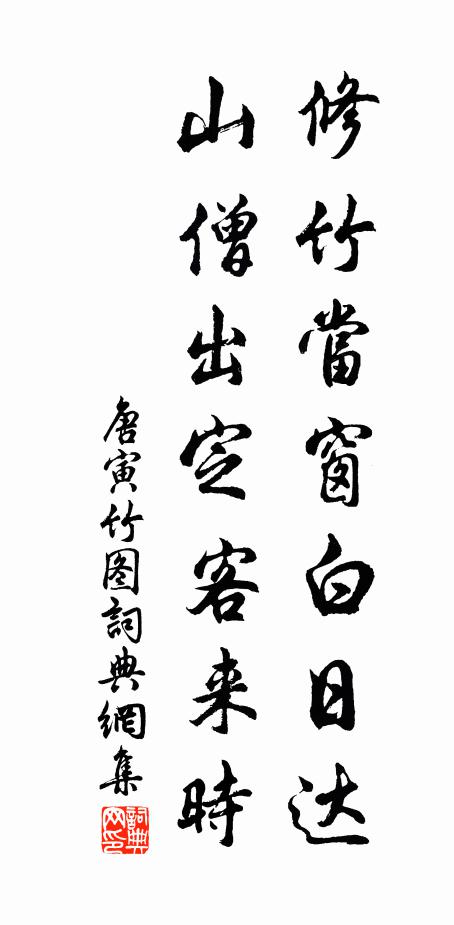 修竹當窗白日达
山僧出定客来時
唐寅竹图詞典網集
詞典
网印